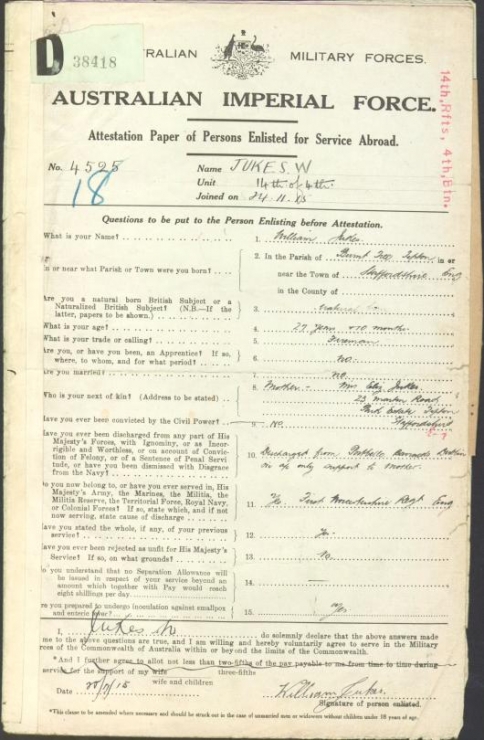 D 38418
TRALIAN MILITARY FORCES.
AUSTRALIAN IMPERIAL FORCE.
Attestation Paper of Persons Enlisted for Service Abroad.
14th, Rfts, 4th, Btn.
No. 4525 Name JUKES. W
18
Unit 14th of 4th
Joined on 24.11.15
Questions to be put to the Person Enlisting before Attestation.
What is your Name? 1. William Jukes
2. In the Parish of Tipton in or
n or near what Parish or Town were you born? near the Town of Staffordshire Eng
in the County of
Are you a natural born British Subject or a
Naturalized British Subject? (N.B.—If the
latter, papers to be shown.) 3. natural
What is your age? 4. 27 years 10 months
What is your trade or calling? 5. Fireman
Are you, or have you been, an Apprentice? If so,
where, to whom, and for what period? 6. no.
Are you married? 7. no
Who is your next of kin? (Address to be stated) 8. Mother – Mrs Jukes
23 Road
Tipton
Staffordshire
Have you ever been convicted by the Civil Power? 9. No
Have you ever been discharged from any part of His
Majesty's Forces, with Ignominy, or as Incor-
rigible and Worthless, or on account of Convic-
tion of Felony, or of a Sentence of Penal Servi-
tude, or have you been dismissed with Disgrace
from the Navy? 10. Discharged from Barracks
only support to Mother
Do you now belong to, or have you ever served in, His
Majesty's Army, the Marines, the Militia, the
Militia Reserve, the Territorial Force, Royal Navy,
or Colonial Forces? If so, state which, and if not
now serving, state cause of discharge 11. Yes Worcestershire Regt Eng
Have you stated the whole, if any, of your previous
service? 12. Yes
Have you ever been rejected as unfit for His Majesty's
Service? If so, on what grounds? 13. No
Do you understand that no Separation Allowance will
be issued in respect of your service beyond an
amount which together with Pay would reach
eight shillings per day 14. —
Are you prepared to undergo inoculation against smallpox
and enteric fever? 15. Yes
I, Jukes W do solemnly declare that the above answers made
me to the above questions are true, and I am willing and hereby voluntarily agree to serve in the Military
rces of the Commonwealth of Australia within or beyond the limits of the Commonwealth.
*And I further agree to allot not less than two-fifths of the pay payable to me from time to time during
three-fifths
service for the support of my wife
wife and children
Date /7/15 William Jukes
Signature of person enlisted.
*This clause to be amended where necessary and should be struck out in the case of unmarried men or widowers without children under 18 years of age.